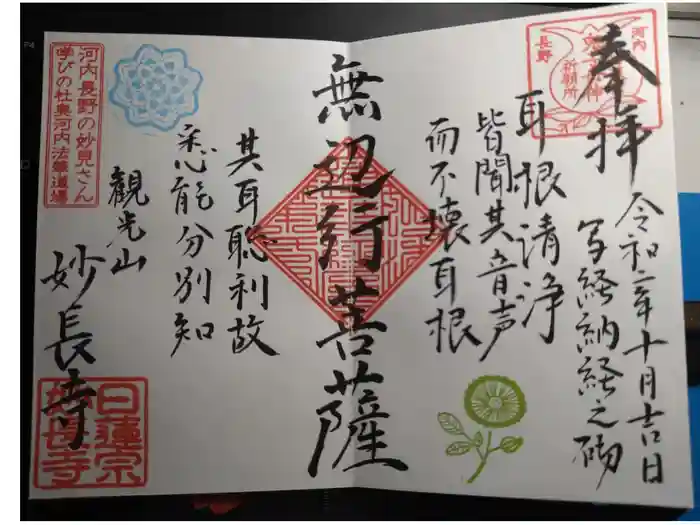 奉拝
令和二年十月吉日
写経納経之砌
耳根清浄
皆聞其音声
而不壊耳根
無辺行菩薩
其耳聡利故
悉能分別知
観光山
妙長寺
河内長野の妙見さん
学びの社奥河内法華道場
河内
長野
祈願所
日蓮宗
妙長寺